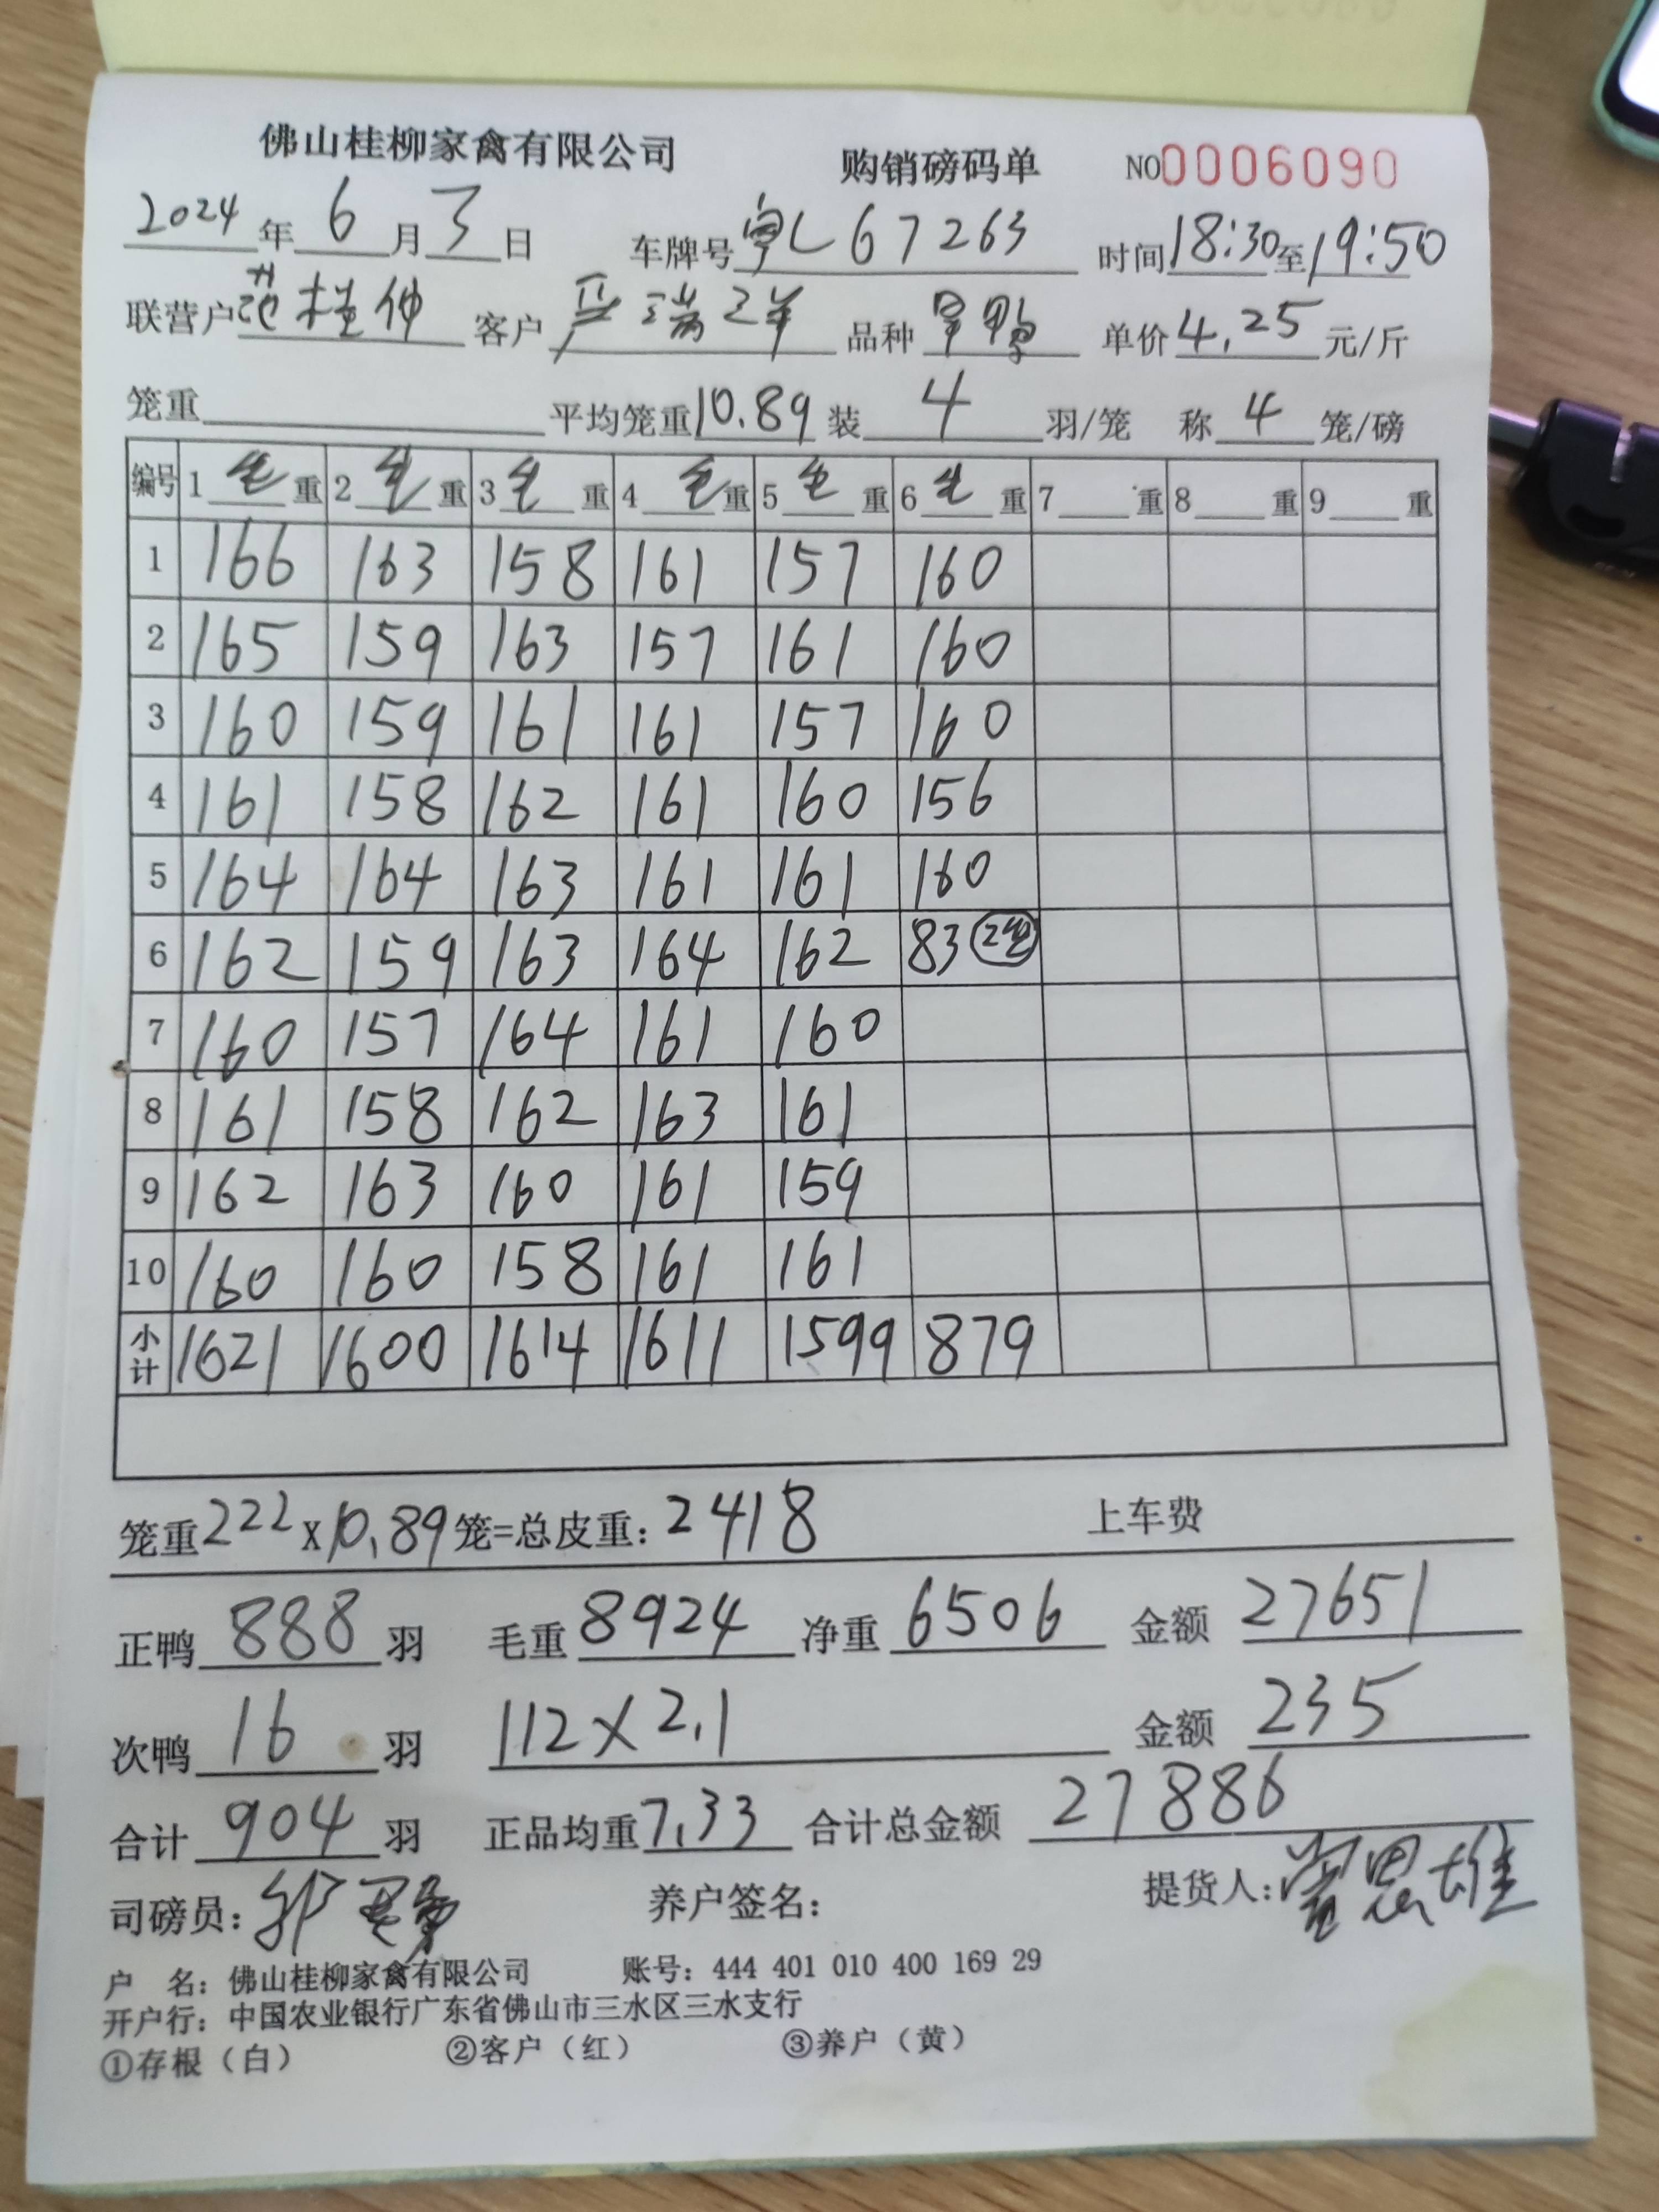 佛山桂柳家禽有限公司 购销磅码单 NO0006090
2024年6月3日 车牌号粤L67263 时间18:30至19:50
联营户范桂伸 客户严瑞祥 品种旱鸭 单价4.25元/斤
笼重 平均笼重10.89装4羽/笼 称4笼/磅
编号 1毛重 2毛重 3毛重 4毛重 5毛重 6毛重 7重 8重 9重
1 166 163 158 161 157 160
2 165 159 163 157 161 160
3 160 159 161 161 157 160
4 161 158 162 161 160 156
5 164 164 163 161 161 160
6 162 159 163 164 162 83 2笼
7 160 157 164 161 160
8 161 158 162 163 161
9 162 163 160 161 159
10 160 160 158 161 161
小计 1621 1600 1614 1611 1599 879
笼重222X10.89笼=总皮重:2418 上车费
正鸭888羽 毛重8924净重6506 金额27651
次鸭16羽 112X2.1 金额235
合计904羽 正品均重7.33 合计总金额27886
司磅员: 养户签名: 提货人:
户 名:佛山桂柳家禽有限公司 账号:444 401 010 400 169 29
开户行:中国农业银行广东省佛山市三水区三水支行
①存根(白) ②客户(红) ③养户(黄)